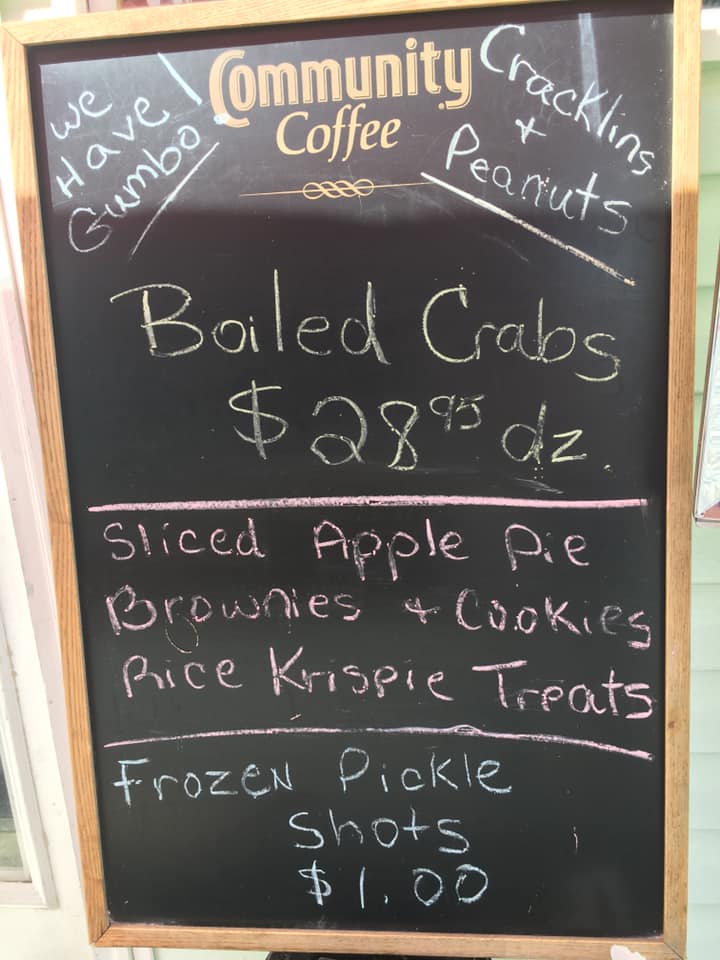 Community
Coffee
We
Have
Gumbo!
Cracklins
+
Peanuts
Boiled Crabs
$28.95 dz.
Sliced Apple Pie
Brownies + Cookies
Rice Krispie Treats
Frozen Pickle
Shots
$1.00